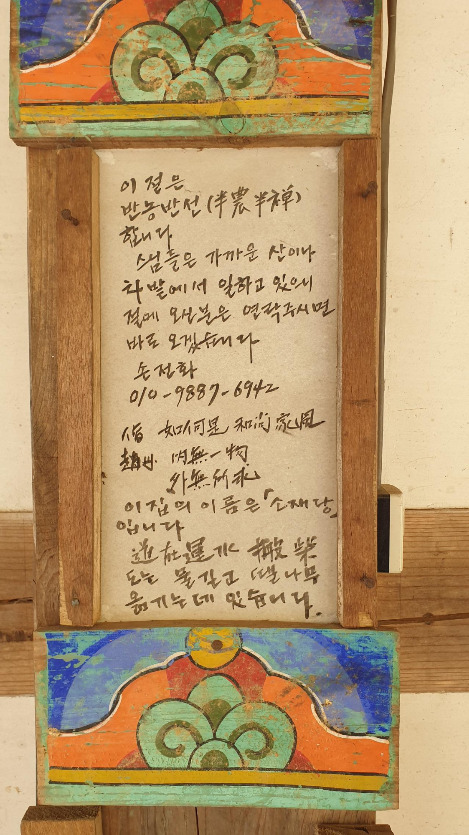 이 절은
반농반선(半農半禅)
합니다
스님들은 가까운 산이나
차 밭에서 일하고 있으니
절에 오신분은 연락주시면
바로 오겠습니다
손전화
010-9887-6942
僧 如何是 和尚家風
趙州 内無一物
外無所求
이 집의 이름은 「소재당」
입니다
道在運水 搬柴
도는 물길고 땔나무
옮기는데 있습니다.